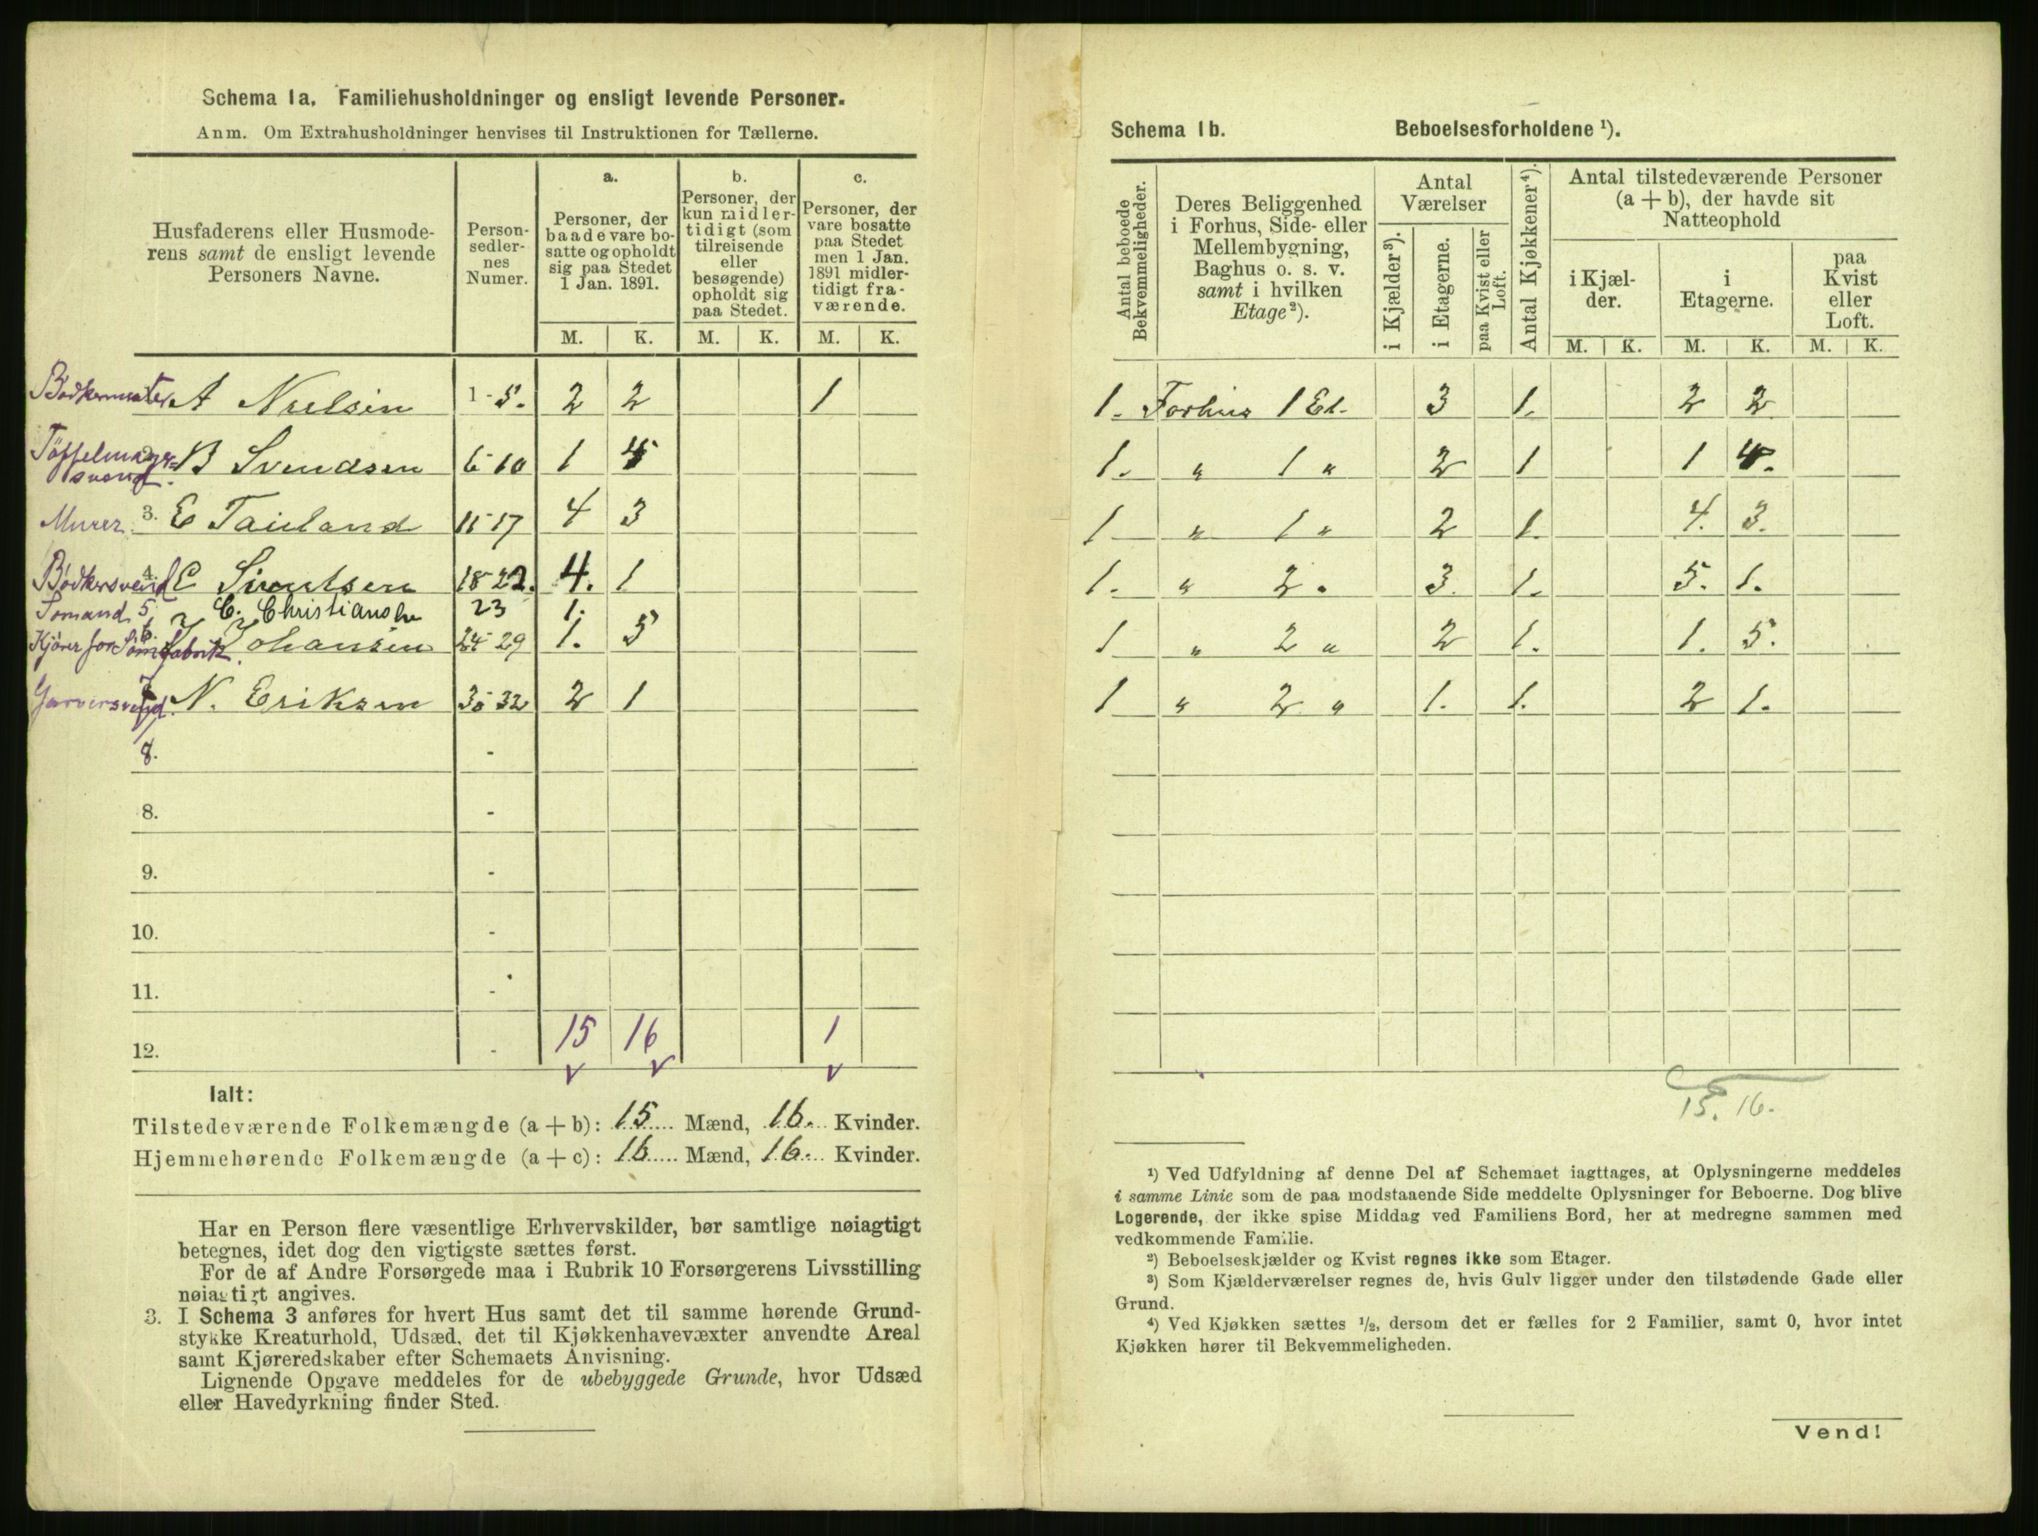 Schema 1a. Familiehusholdninger og ensligt levende Personer.
Anm. Om Extrahusholdninger henvises til Instruktionen for Tællerne.
Husfaderens eller Husmode-
rens samt de ensligt levende
Personers Navne.
Person-
sedler-
nes
Numer.
a.
Personer, der
baade vare bo-
satte og opholdt
sig paa Stedet
1 Jan. 1891.
b.
Personer, der
kun midler-
tidigt (som
tilreisende
eller
besøgende)
opholdt sig
paa Stedet.
c.
Personer, der
vare bosatte
paa Stedet
men 1 Jan.
1891 midler-
tidigt fra-
værende.
M. K. M. K. M. K.
Bødkermester A Nielsen 1-5. 2 2 1
Tøffelmager-
svend. B Svendsen 6-10 1 4
Murer. 3. E Tauland 11-17 4 3
Bødkersvend 4. E Simensen 18-22. 4. 1
Sømand 5 C. Christiansen 23 1.
Kjører for Sømfabrik. 6. J Johansen 24-29 1. 5
Garversvend. 7 N. Eriksen 30-32 2 1
8. -
8. -
9. -
10. -
11. -
12. - 15 16 1
Ialt:
Tilstedeværende Folkemængde (a + b): 15 Mænd, 16. Kvinder.
Hjemmehørende Folkemængde (a + c): 16 Mænd, 16. Kvinder.
Har en Person flere væsentlige Erhvervskilder, bør samtlige nøiagtigt
betegnes, idet dog den vigtigste sættes først.
For de af Andre Forsørgede maa i Rubrik 10 Forsørgerens Livsstilling
nøiagtigt angives.
3. I Schema 3 anføres for hvert Hus samt det til samme hørende Grund-
stykke Kreaturhold, Udsæd, det til Kjøkkenhavevæxter anvendte Areal
samt Kjøreredskaber efter Schemaets Anvisning.
Lignende Opgave meddeles for de ubebyggede Grunde, hvor Udsæd
eller Havedyrkning finder Sted.
Schema 1b. Beboelsesforholdene ¹).
Antal beboede
Bekvemmeligheder.
Deres Beliggenhed
i Forhus, Side- eller
Mellembygning,
Baghus o. s. v.
samt i hvilken
Etage²).
Antal
Værelser
i Kjælder³).
i Etagerne.
paa Kvist eller
Loft.
Antal Kjøkkener⁴).
Antal tilstedeværende Personer
(a + b), der havde sit
Natteophold
i Kjæl-
der.
i
Etagerne.
paa
Kvist
eller
Loft.
M. K. M. K. M. K.
1. Forhus 1 Et. 3 1. 2 2
1. „ 1 „ 2 1 1 4.
1 „ 1 „ 2 1. 4. 3.
1. „ 2. 3. 1. 5. 1.
1 „ 2 „ 2 1. 1. 5.
1 „ 2 „ 1. 1. 2 1.
15. 16.
¹) Ved Udfyldning af denne Del af Schemaet iagttages, at Oplysningerne meddeles
i samme Linie som de paa modstaaende Side meddelte Oplysninger for Beboerne. Dog blive
Logerende, der ikke spise Middag ved Familiens Bord, her at medregne sammen med
vedkommende Familie.
²) Beboelseskjælder og Kvist regnes ikke som Etager.
³) Som Kjælderværelser regnes de, hvis Gulv ligger under den tilstødende Gade eller
Grund.
⁴) Ved Kjøkken sættes ½, dersom det er fælles for 2 Familier, samt 0, hvor intet
Kjøkken hører til Bekvemmeligheden.
Vend!